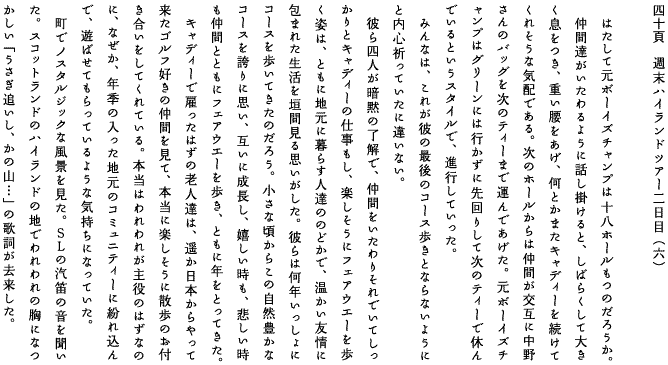 四十頁　週末ハイランドツアー二日目（六）
はたして元ボーイズチャンプは十八ホールもつのだろうか。
仲間達がいたわるように話し掛けると、しばらくして大き
く息をつき、重い腰をあげ、何とかまたキャディーを続けて
くれそうな気配である。次のホールからは仲間が交互に中野
さんのバッグを次のティーまで運んであげた。元ボーイズチ
ャンプはグリーンには行かずに先回りして次のティーで休ん
でいるというスタイルで、進行していった。
みんなは、これが彼の最後のコース歩きとならないように
と内心祈っていたに違いない。
彼ら四人が暗黙の了解で、仲間をいたわりそれでいてしっ
かりとキャディーの仕事もし、楽しそうにフェアウエーを歩
く姿は、ともに地元に暮らす人達ののどかで、温かい友情に
包まれた生活を垣間見る思いがした。彼らは何年いっしょに
コースを歩いてきたのだろう。小さな頃からこの自然豊かな
コースを誇りに思い、互いに成長し、嬉しい時も、悲しい時
も仲間とともにフェアウエーを歩き、ともに年をとってきた。
キャディーで雇ったはずの老人達は、遥か日本からやって
来たゴルフ好きの仲間を見て、本当に楽しそうに散歩のお付
き合いをしてくれている。本当はわれわれが主役のはずなの
に、なぜか、年季の入った地元のコミュニティーに紛れ込ん
で、遊ばせてもらっているような気持ちになっていた。
町でノスタルジックな風景を見た。ＳＬの汽笛の音を聞い
た。スコットランドのハイランドの地でわれわれの胸になつ
かしい「うさぎ追いし、かの山…」の歌詞が去来した。